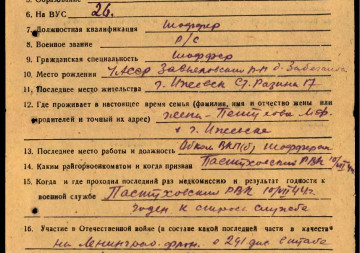 6. На ВУС 26.
7. Должностная квалификация шоффер
8. Военное звание р/с
9. Гражданская специальность шоффер
10. Место рождения УАССР Завьяловский р-н д.
11. Последнее место жительства г. Ижевск Ст. Разина 17
12. Где проживает в настоящее время семья (фамилия, имя и отчество жены или
родителей и точный их адрес) жена -
г. Ижевск
13. Последнее место работы и должность Обком ВКП(б) шоффером
14. Каким райгорвоенкоматом и когда призван Пастуховским РВК
15. Когда и где проходил последний раз медкомиссию и результат годности к
военной службе Пастуховский РВК 10/VII 44г.
Годен к строев службе
16. Участие в Отечественной войне (в составе какой последней части и в качестве
на Ленинград. фрон. в 291 див